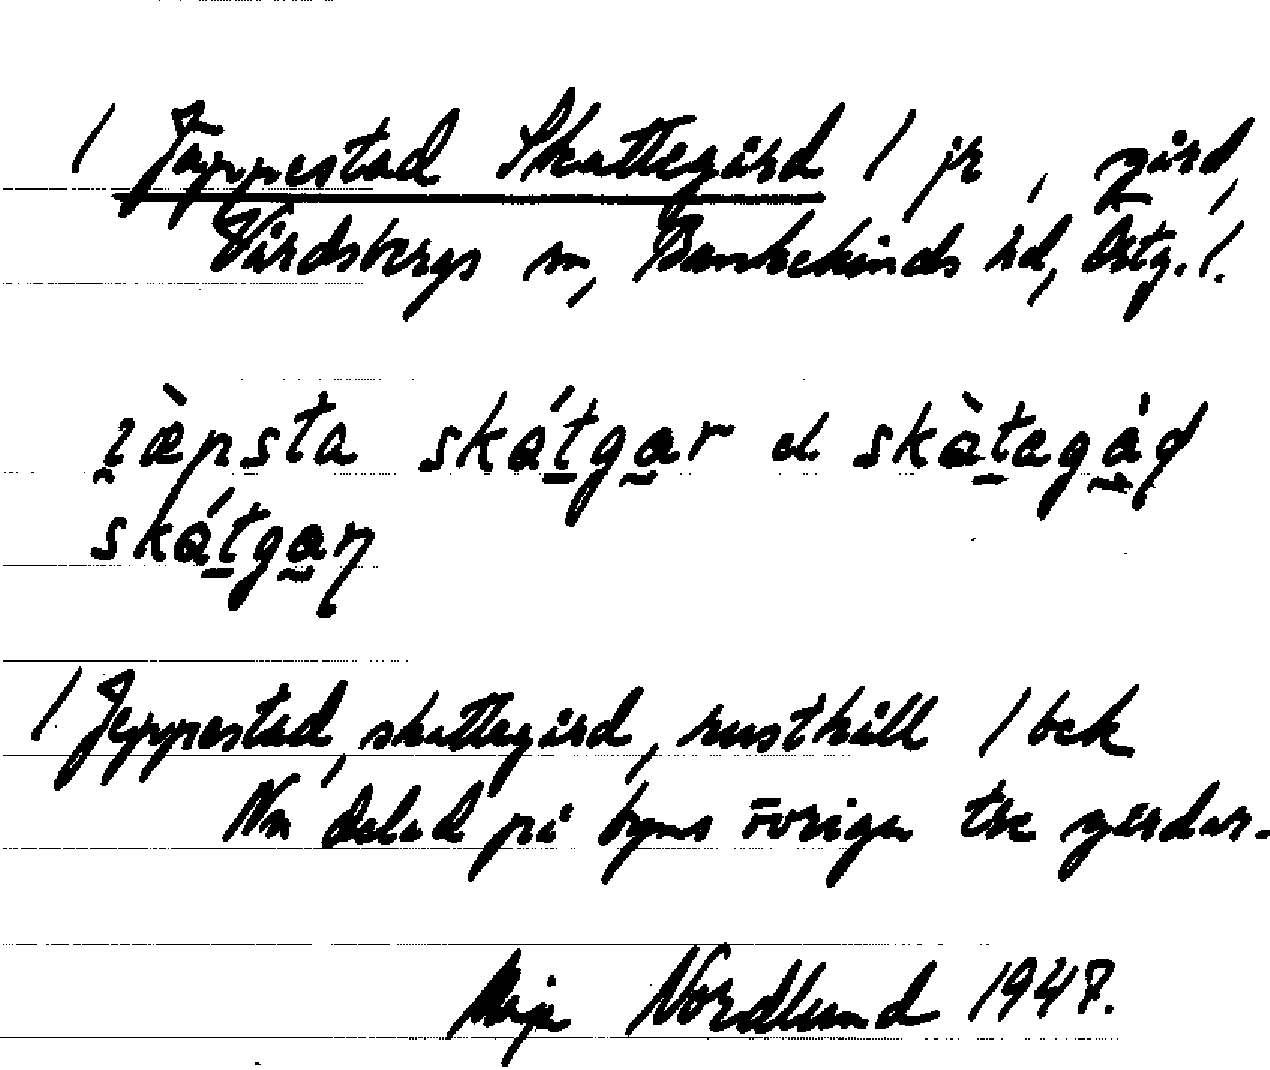 / Jeppestad Skattegård / jr, gård,
Vårdsbergs sn, Bankekinds hd, Östg. /.
skátgar el skàtagàd
skátgar
/ Jeppestad, skattegård, rusthåll / bek
Nu delad på byns övriga tre gårdar.
Maja Nordlund 1947.